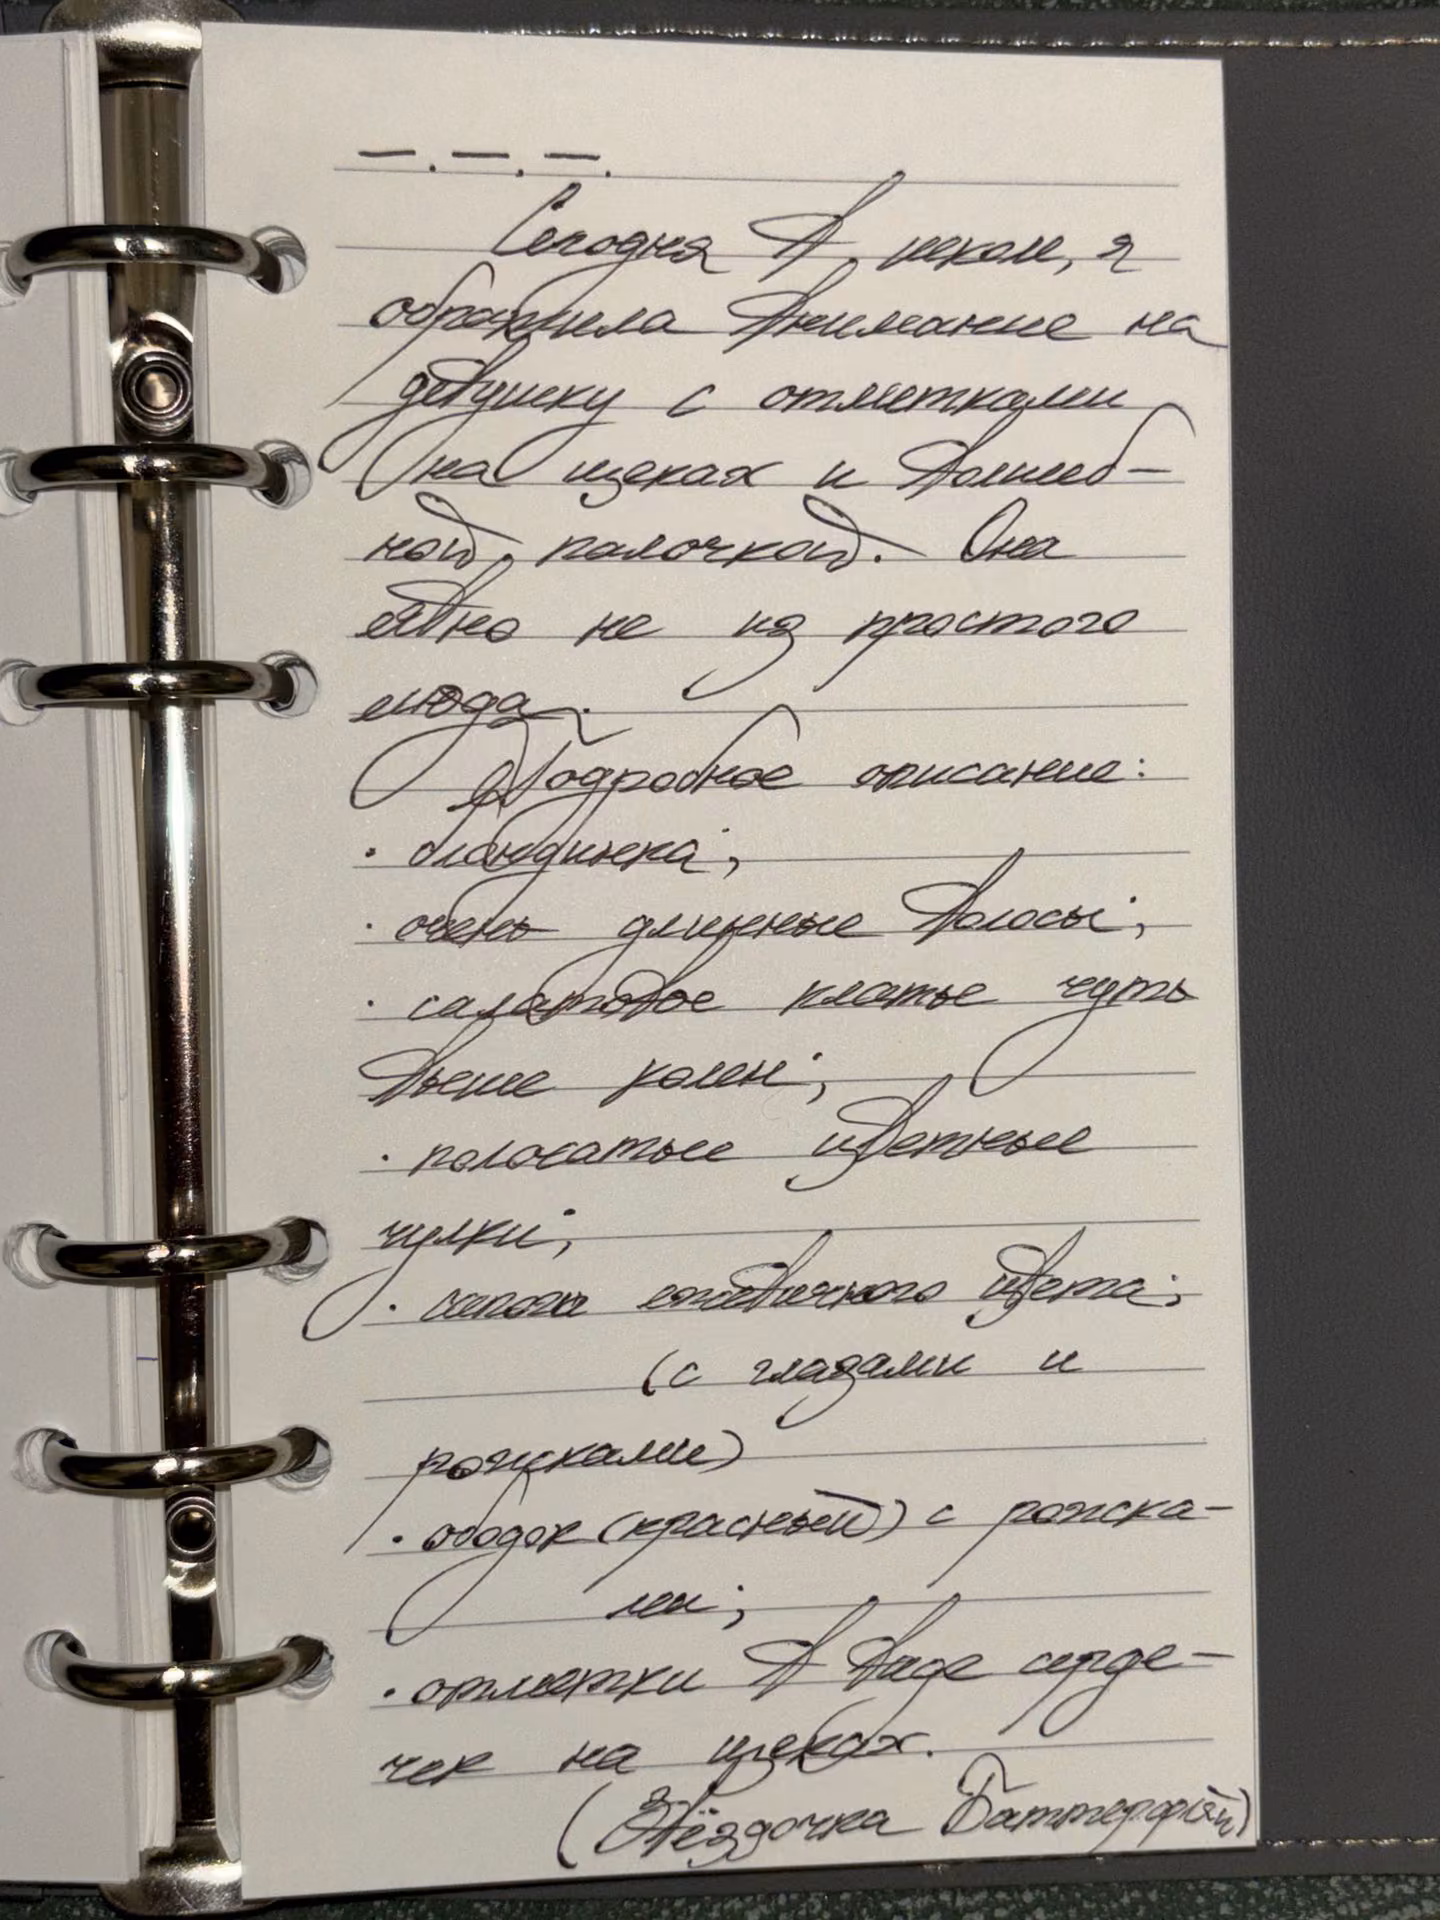 —.—.—.
Сегодня в школе, я
обратила внимание на
девушку с отметками
на щеках и волшеб-
ной палочкой. Она
явно не из простого
люда.
Подробное описание:
· блондинка;
· очень длинные волосы;
· салатовое платье чуть
выше колен;
· полосатые цветные
чулки;
· сапоги ежевичного цвета;
(с глазами и
рожками)
· ободок (красный) с рожка-
ми;
· отметки в виде серде-
чек на щеках.
(Звёздочка Баттерфляй)